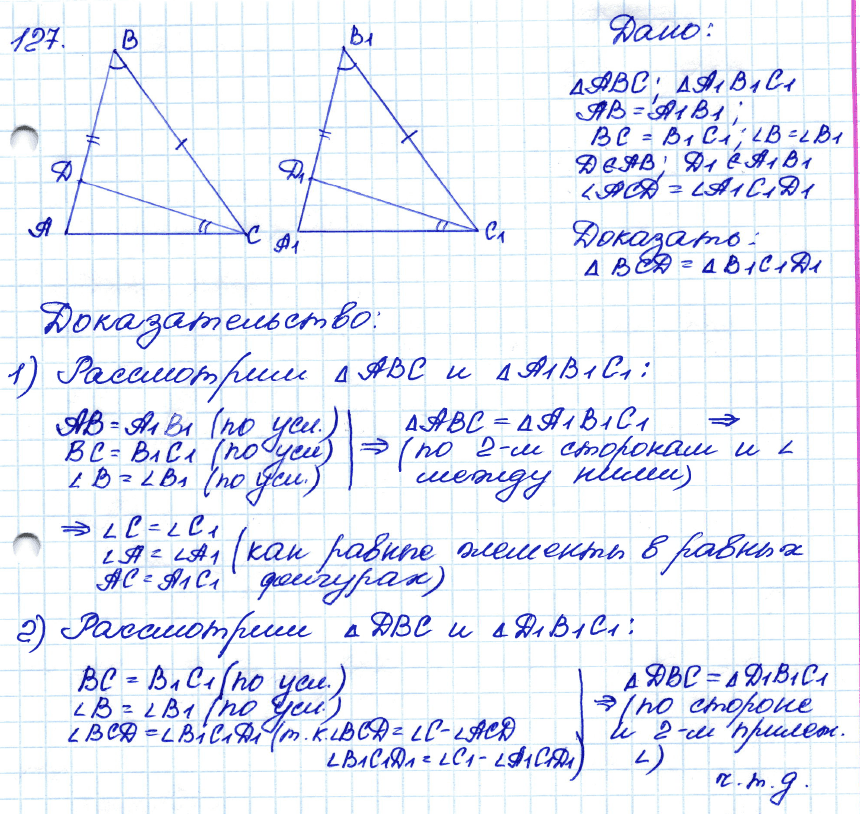 127.
B
D
A
C
B1
D1
A1
C1
Дано:
△ABC; △A1B1C1
AB = A1B1;
BC = B1C1; ∠B = ∠B1
D ∈ AB; D1 ∈ A1B1
∠ACD = ∠A1C1D1
Доказать:
△BCD = △B1C1D1
Доказательство:
1) Рассмотрим △ABC и △A1B1C1:
AB = A1B1 (по усл.)
BC = B1C1 (по усл)
∠B = ∠B1 (по усл.)
⇒ △ABC = △A1B1C1 ⇒
(по 2-м сторонам и ∠
между ними)
⇒ ∠C = ∠C1
∠A = ∠A1 (как равные элементы в равных
AC = A1C1 фигурах)
2) Рассмотрим △DBC и △D1B1C1:
BC = B1C1 (по усл.)
∠B = ∠B1 (по усл.)
∠BCD = ∠B1C1D1 (т.к ∠BCD = ∠C - ∠ACD
∠B1C1D1 = ∠C1 - ∠A1C1D1)
△DBC = △D1B1C1
⇒ (по стороне
и 2-м прилеж.
∠)
ч.т.д.